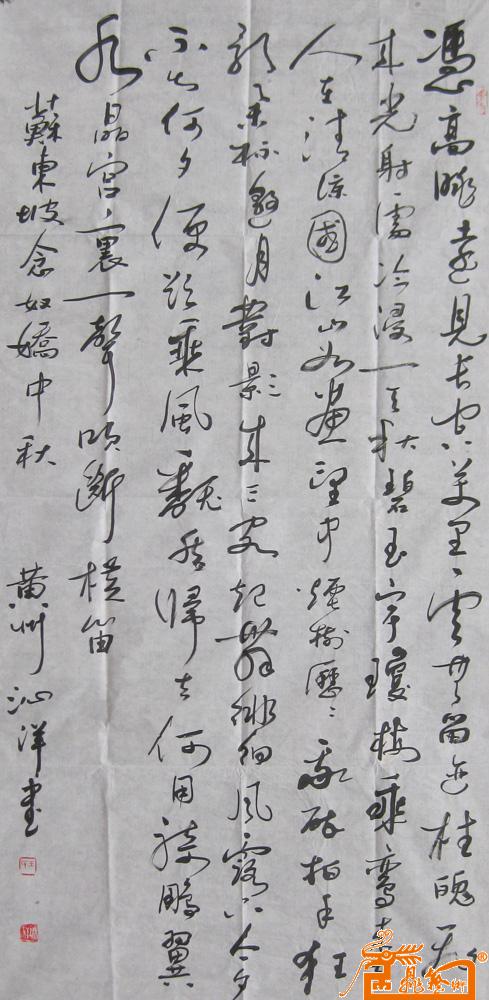 憑高眺遠見長空萬里雲無留迹桂魄飛
來光射處冷浸一天秋碧玉宇瓊樓乘鸞來
人在清涼國江山如畫望中煙樹歷々我醉拍手狂
歌舉杯邀月對影成三客起舞徘徊風露下今夕
不知何夕便欲乘風翻然歸去何用騎鵬翼
水晶宮裏一聲吹斷橫笛
蘇東坡念奴嬌中秋 黄州沁洋書